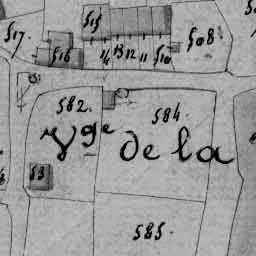 515
517.
516
14 13 12 11
510
508.
582.
584.
Vge de la
53
585.